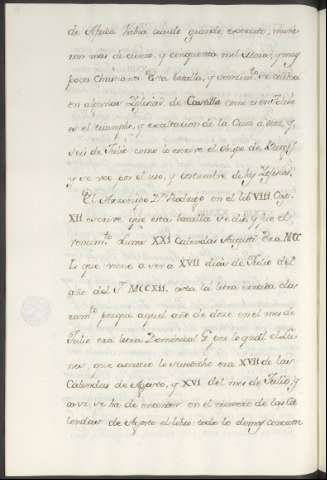 de Africa había venido grande exercito, murie
ron mas de ciento, y cinquenta mil Moros, y muy
pocos christianos. Esta batalla, y vencim.to se celebra
en algunas Iglesias de Castilla como
es el triumpho, y exaltacion de la Cruz a diez, y
seis de Julio como lo escrive el Obispo de Burg.s
y se ve por el uso, y costumbre de las Iglesias.
El Arzobispo D.n Rodrigo en el lib. VIII Cap.
XII escrive que esta batalla se dió, y fue el
vencim.to Lunes XXI Calendas Augusti Era MCC
L. que viene a ser a XVII dias de Julio del
año del S.r MCCXII. esta la letra errada cla
ram.te porque aquel año de doce en el mes de
Julio era letra Dominical G. por lo qual el Lu
nes que acaeció lo susodicho era XVII de las
Calendas de Agosto, y XVI del mes de Julio, y
assi se ha de enmendar en el numero de las Ca
lendas de Agosto el libro: todo lo demas concuer